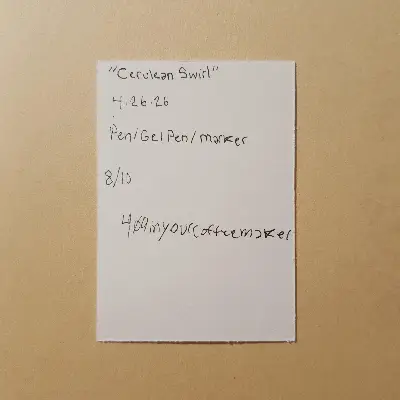 "Cerulean Swirl"
4.26.26
Pen/Gel Pen/marker
8/10
404inyourcoffeemaker